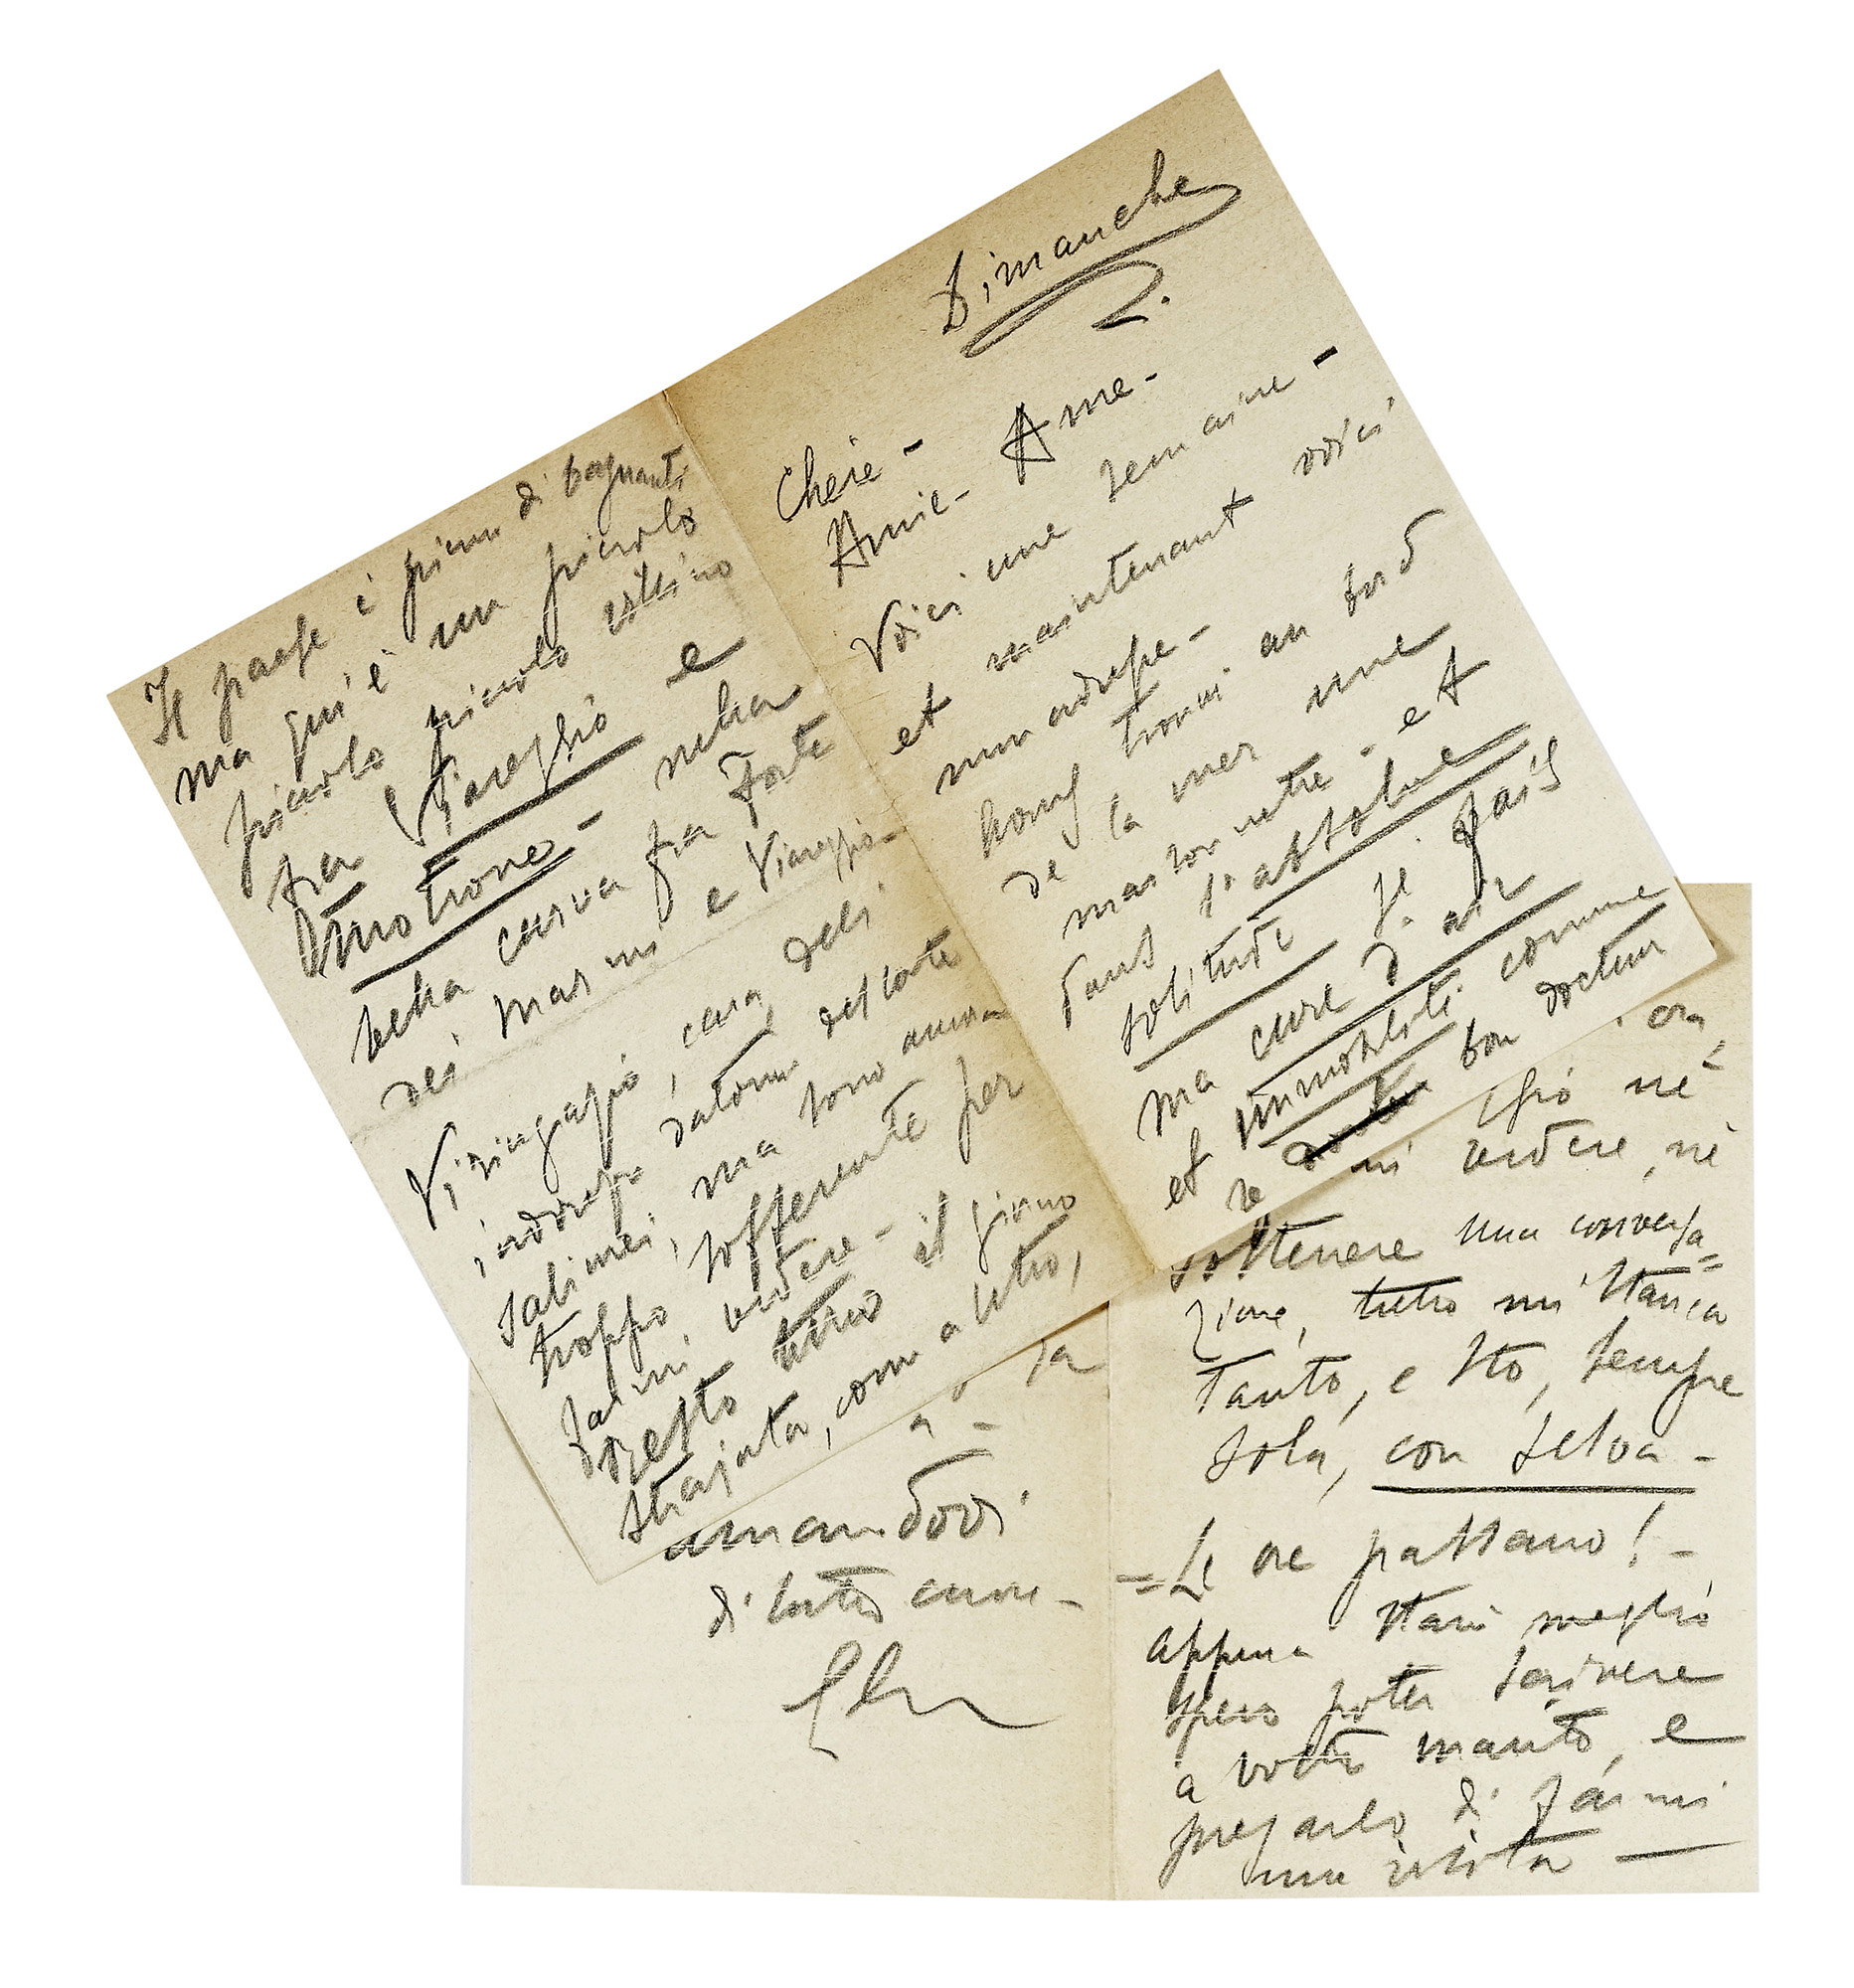 Dimanche
Chere - Ame -
Amie -
Voici une semaine -
et maintenant voici
mon adresse -
nous au bord
de la mer une
et
dans l'absolue
solitude je fais
ma cure d'air
et immobilité comme
bon docteur
Il paese è pieno di bagnanti
ma qui è un piccolo
piccolo piccolo
fra Viareggio e
Motrone - nella
bella curva fra Forte
dei Marmi e Viareggio -
Vi ringrazio, cara, dell
indirizzo datomi del conte
Salimei, ma sono ancora
troppo sofferente per
farmi vedere - il giorno
resto tutto
strajata, com
ora,
né
mi vedere, né
sostenere una conversa=
zione, tutto mi stanca
tanto, e sto, sempre
sola, con Selva -
= Le ore passano! -
Appena starò meglio
spero poter scrivere
a vostro marito, e
pregarlo di farmi
una visita -
amandovi
di tutto cuore -